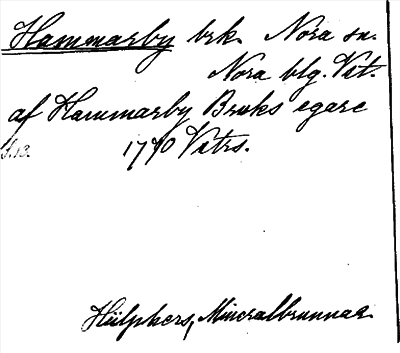 Hammarby brk. Nora sn.
Nora blg. Vst.
af Hammarby Bruks egare
s. 13. 1770 Vstrs.
Hülphers, Mineralbrunnar